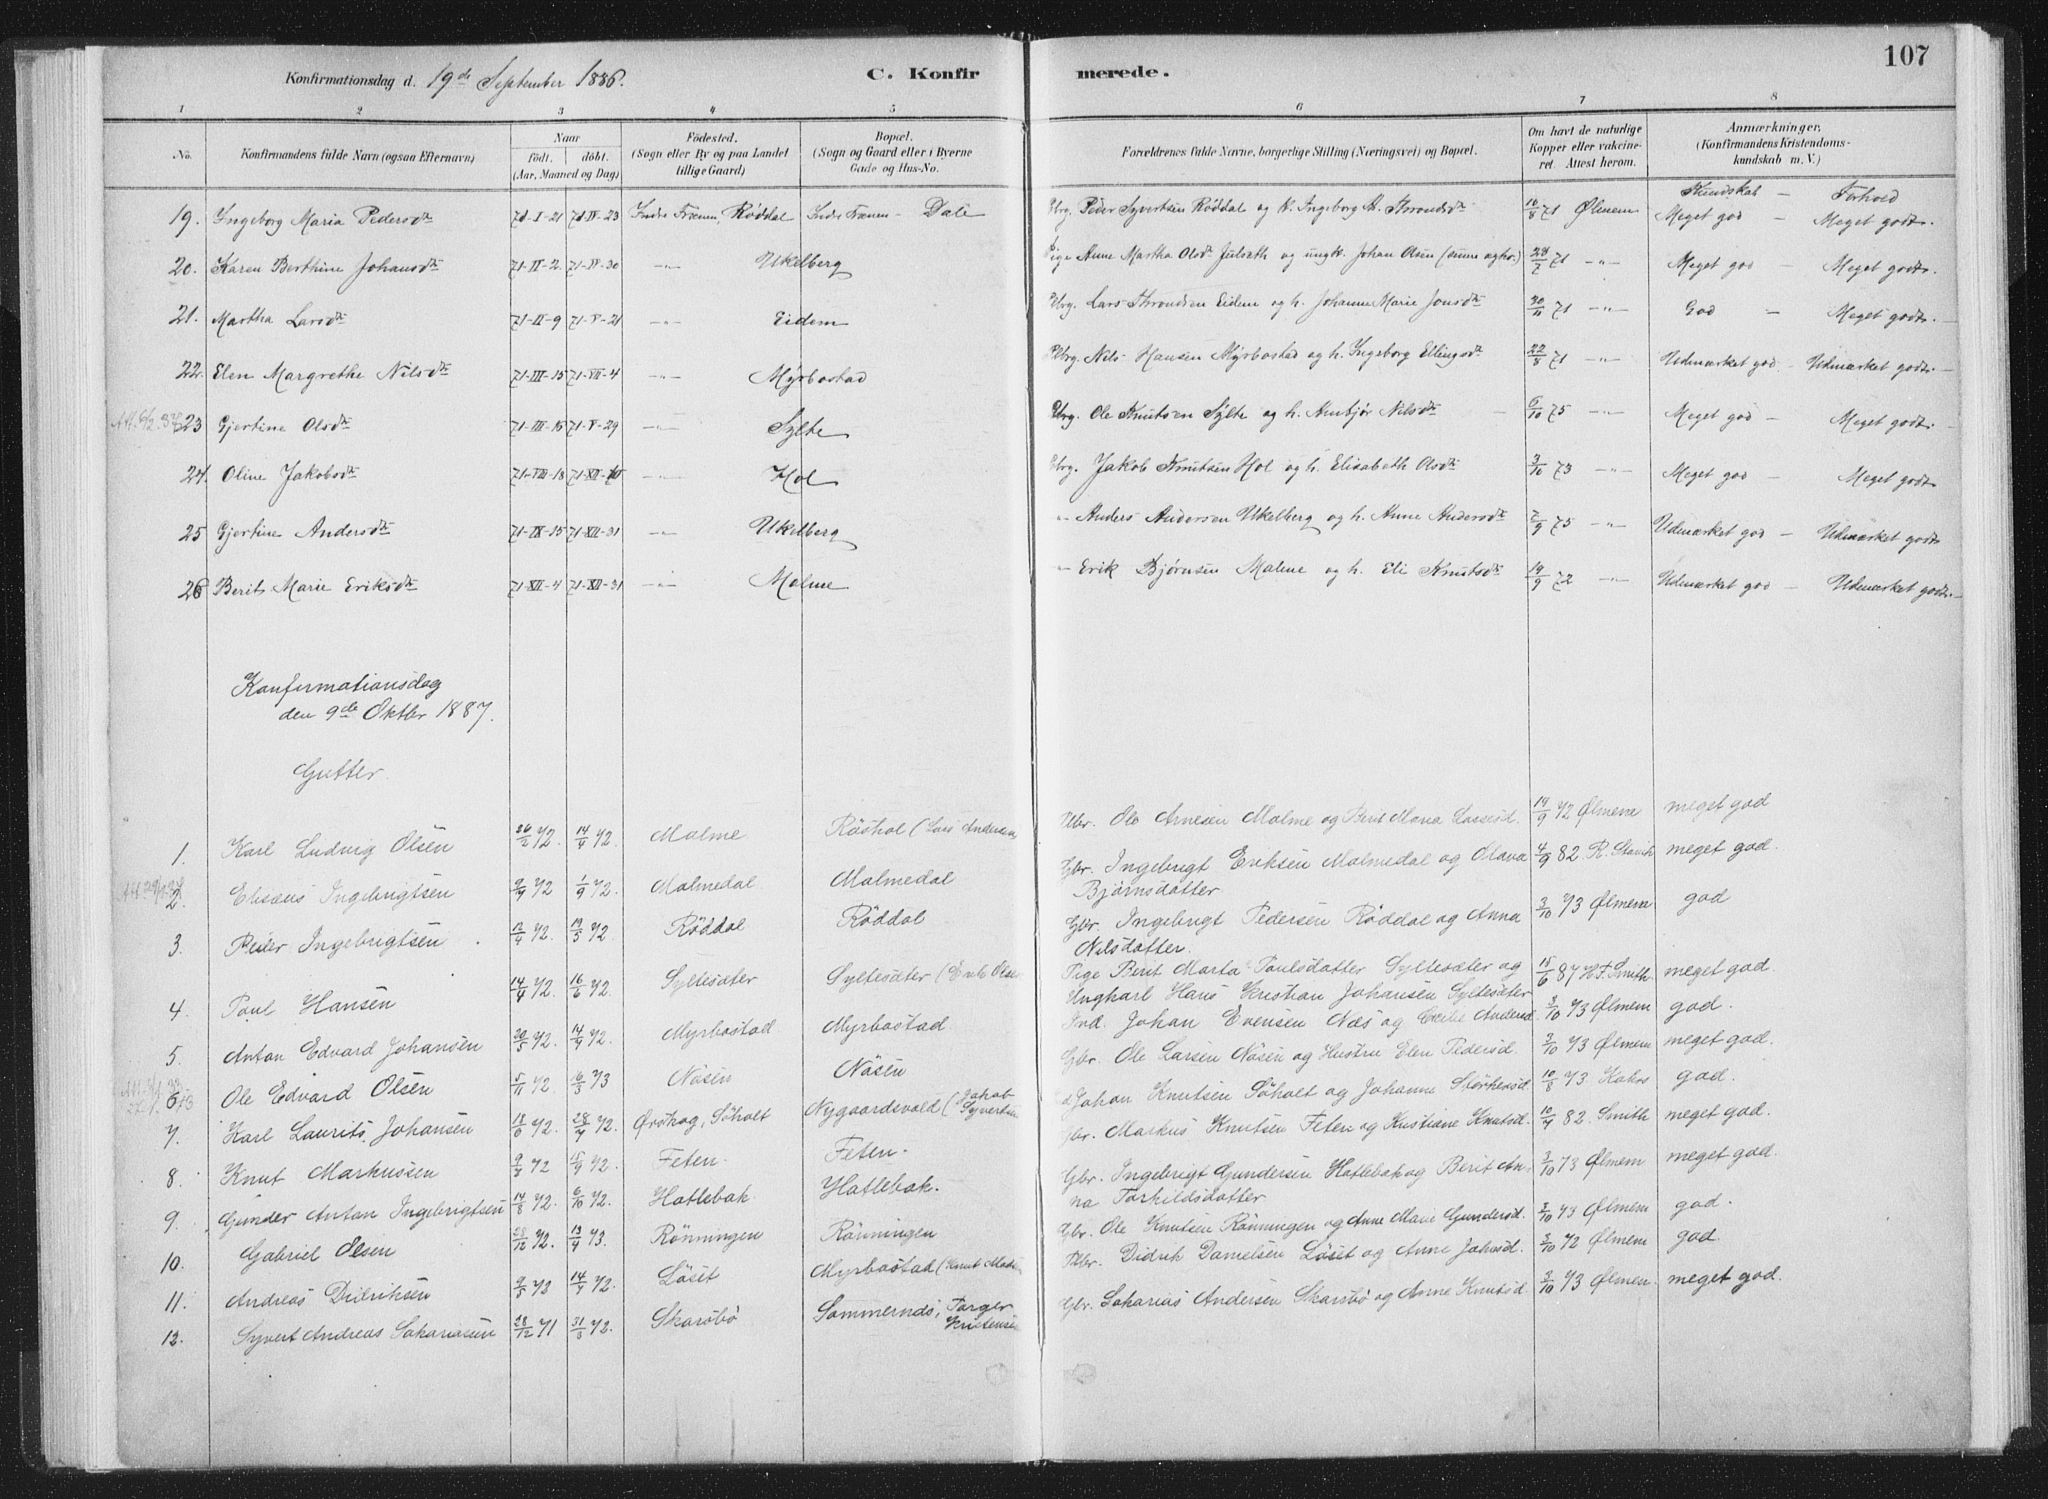 107
Konfirmationsdag d. 19de September 1886. C. Konfirmerede.
1 2 3 4 5 6 7 8
No. Konfirmandens fulde Navn (ogsaa Efternavn) Naar födt. döbt. (Aar, Maaned og Dag) Födested. (Sogn eller By og paa Landet tillige Gaard) Bopæl. (Sogn og Gaard eller i Byerne Gade og Hus-No. Forældrenes fulde Navne, borgerlige Stilling (Næringsvei) og Bopæl. Om havt de naturlige Kopper eller vakcineret. Attest herom. Anmærkninger, (Konfirmandens Kristendomskundskab m. V.)
Kundskab - Forhold
19. Ingeborg Maria Pedersdt 71-I-21 71-IV-23 Indre Frænen, Röddal Indre Frænen - Dale Gbrg. Peder Syvertsen Röddal og h. Ingeborg A. Throndsdt 16/8 71 Ølmem Meget god - Meget godt.
20. Karen Berthine Johansdt 71-II-2 71-IV-30 -"- Ukelberg Pige Anne Martha Olsdt Julseth og ungk. Johan Olsen 28/7 71 -"- Meget god - Meget godt.
21. Martha Larsdt 71-II-9 71-V-21 -"- Eidem Gbrg. Lars Throndsen Eidem og h. Johanne Marie Jonsdt 20/11 71 -"- God - Meget godt.
22. Elen Margrethe Nilsdt 71-III-15 71-VII-4 -"- Myrbostad Gbrg. Nils Hansen Myrbostad og h. Ingeborg Ellingsdt 22/8 71 -"- Udmærket god - Udmærket godt.
23 Gjertine Olsdt 71-III-15 71-V-29 -"- Sylte Gbrg. Ole Knutsen Sylte og h. Anbjør Nilsdt 6/10 75 -"- Meget god - Meget godt.
24. Oline Jakobsdt 71-VIII-18 -"- Hol Gbrg. Jakob Knutsen Hol og h. Elisabeth Olsdt 3/10 73 -"- Meget god - Meget godt
25 Gjertine Andersdt 71-IX-15 71-XII-31 -"- Ukelberg " Anders Andersen Ukelberg og h. Anne Andersdt 7/9 75 -"- Udmærket god - Udmærket godt
26 Berit Marie Eriksdt 71-XII-4 71-XII-31 -"- Malme " Erik Bjørnsen Malme og h. Eli Knutsdt 19/9 72 -"- Udmærket god - Udmærket godt.
Konfirmationsdag
den 9de Oktbr 1887.
Gutter.
1. Karl Ludvig Olsen 26/2 72. 14/4 72. Malme Røshol (Lars Andersen Gbr. Ole Arnesen Malme og Berit Maria Larsesd. 19/9 72 Ølmem meget god
2. Elisæus Ingebrigtsen 9/7 72 1/9 72. Malmedal Malmedal Gbr. Ingebrigt Eriksen Malmedal og Olava 4/9 82. meget god.
Bjørnsdatter
3. Peder Ingebrigtsen 12/4 72. 19/5 72 Röddal Röddal Gbr. Ingebrigt Pedersen Röddal og Anna 3/10 73 Ølmem god
Nilsdatter.
4. Paul Hansen 14/4 72. 16/6 72. Syltesæter Syltesæter (Erik Olsen Pige Berit Marta Paulsdatter Syltesæter og 15/6 87 Smith meget god.
Ungkarl Hans Kristian Johansen Syltesæter
5. Anton Edvard Johansen 20/5 72. 14/7 72. Myrbostad Myrbostad Ind. Johan Evensen Næs og Andersd 3/10 73 Ølmem god.
6. Ole Edvard Olsen 5/11 72 16/3 73 Nåsen Nåsen Gbr. Ole Larsen Nåsen og Hustru Elen Pedersd. 3/10 73 Ølmem meget god.
7. Karl Laurits Johansen 13/6 72. 28/7 72. Ørskog, Søholt Nygaardsvold (Jakob Syvertsen Johan Knutsen Søholt og Johanne 10/8 73 Kahrs god.
8. Knut Markussen 9/8 72 15/9 72. Feten. Feten. Gbr. Markus Knutsen Feten og Kristiane Knutsd. 10/7 82. Smith meget god.
9. Gunder Anton Ingebrigtsen 14/8 72. 6/10 72. Hatlebak. Hatlebak. Gbr. Ingebrigt Gundersen Hatlebak og Berit An- 3/10 73 Ølmem meget god.
na Torhildsdatter
10. Gabriel Olsen 28/12 72. 13/4 73. Rønningen Rønningen Gbr. Ole Knutsen Rønningen og Anne Marie Gundersd. 3/10 73 Ølmem god.
11. Andreas Didriksen 9/5 73 14/7 72. Løset Myrbostad (Knut Gbr. Didrik Danielsen Løset og Anne Johnsd. 3/10 72 Ølmem god.
12. Syvert Andreas Sakariasen 28/12 71 31/3 72. Skarsbø Sommernes, Torger Kristensen Gbr. Sakarias Andersen Skarsbø og Anne Knutsd. 3/10 73 Ølmem. meget god.